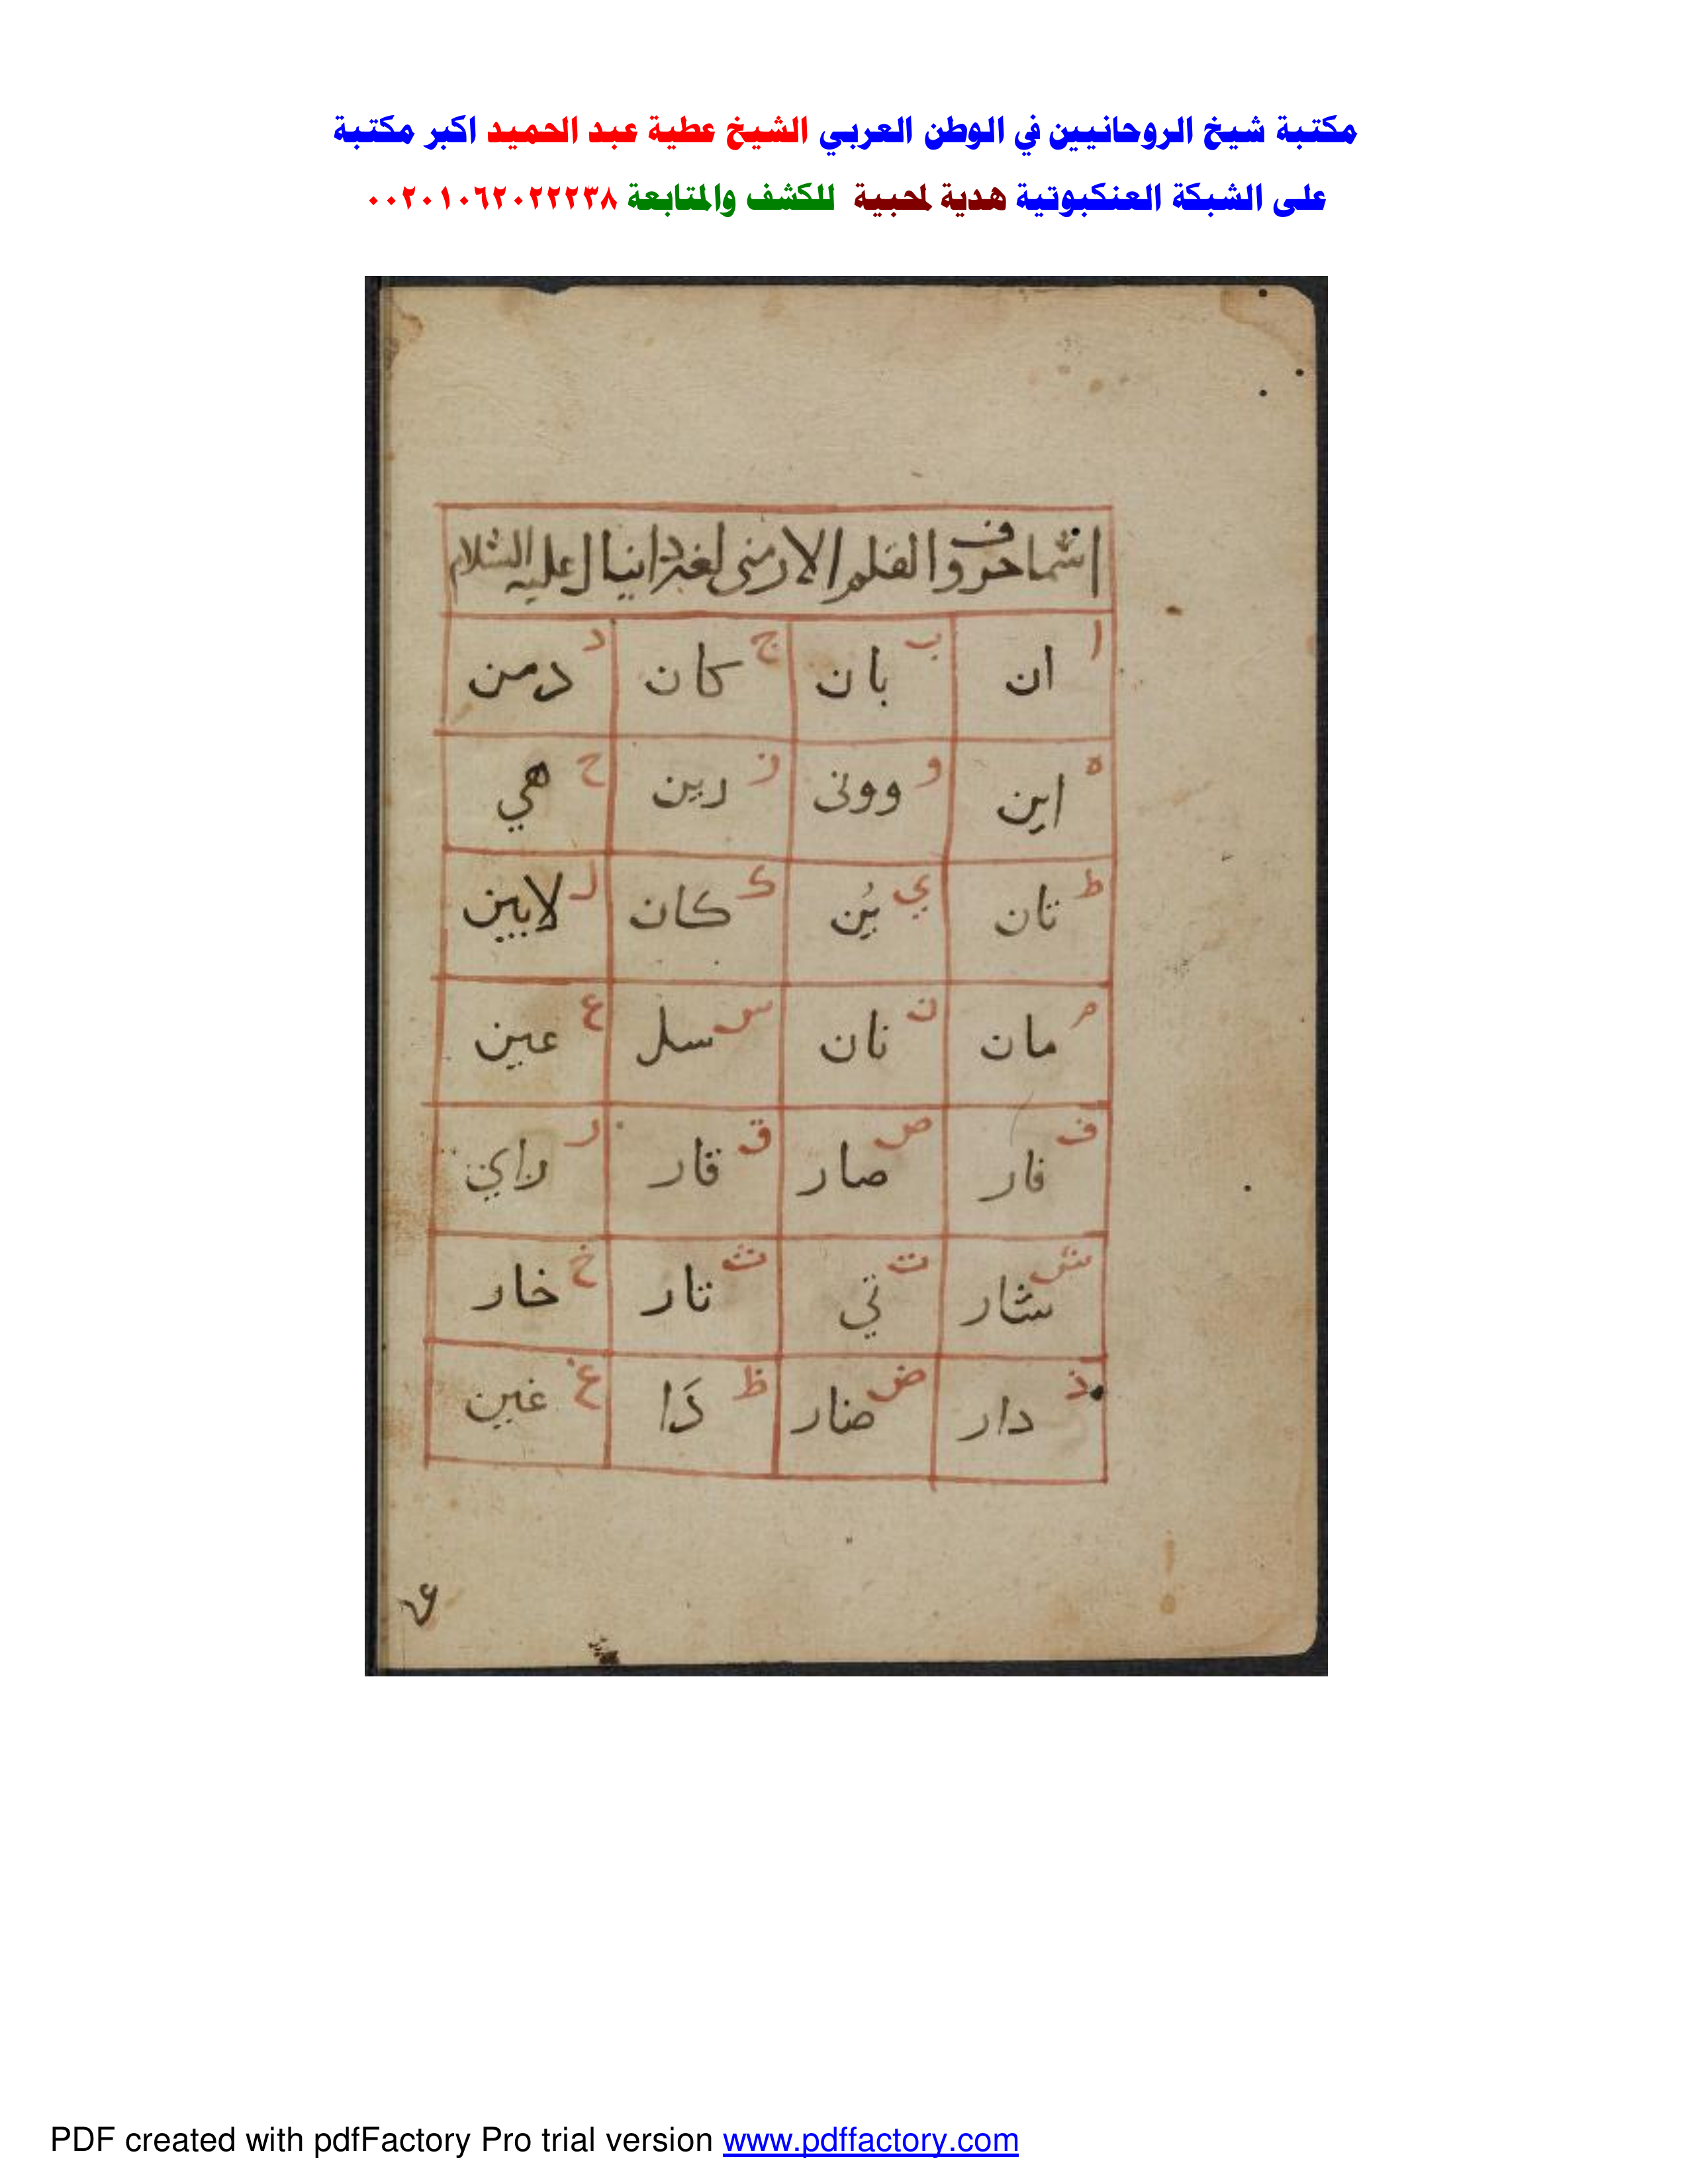 مكتبة شيخ الروحانيين في الوطن العربي الشيخ عطية عبد الحميد اكبر مكتبة
على الشبكة العنكبوتية هدية لمحبية للكشف والمتابعة ٠٠٢٠١٠٦٢٠٢٢٢٣٨
اسما حروف القلم الارمنى لغير دانيال عليه السلام
ا ان ب بان ج كان د دمن
ه اين و وونى ز رين ح هي
ط تان ي ين ك كان ل لايين
م مان ن نان س سل ع عين
ف فار ص صار ق قار ر راي
ش شار ت تي ث تار خ خار
ذ دار ض ضار ظ دَا غ غين
PDF created with pdfFactory Pro trial version www.pdffactory.com